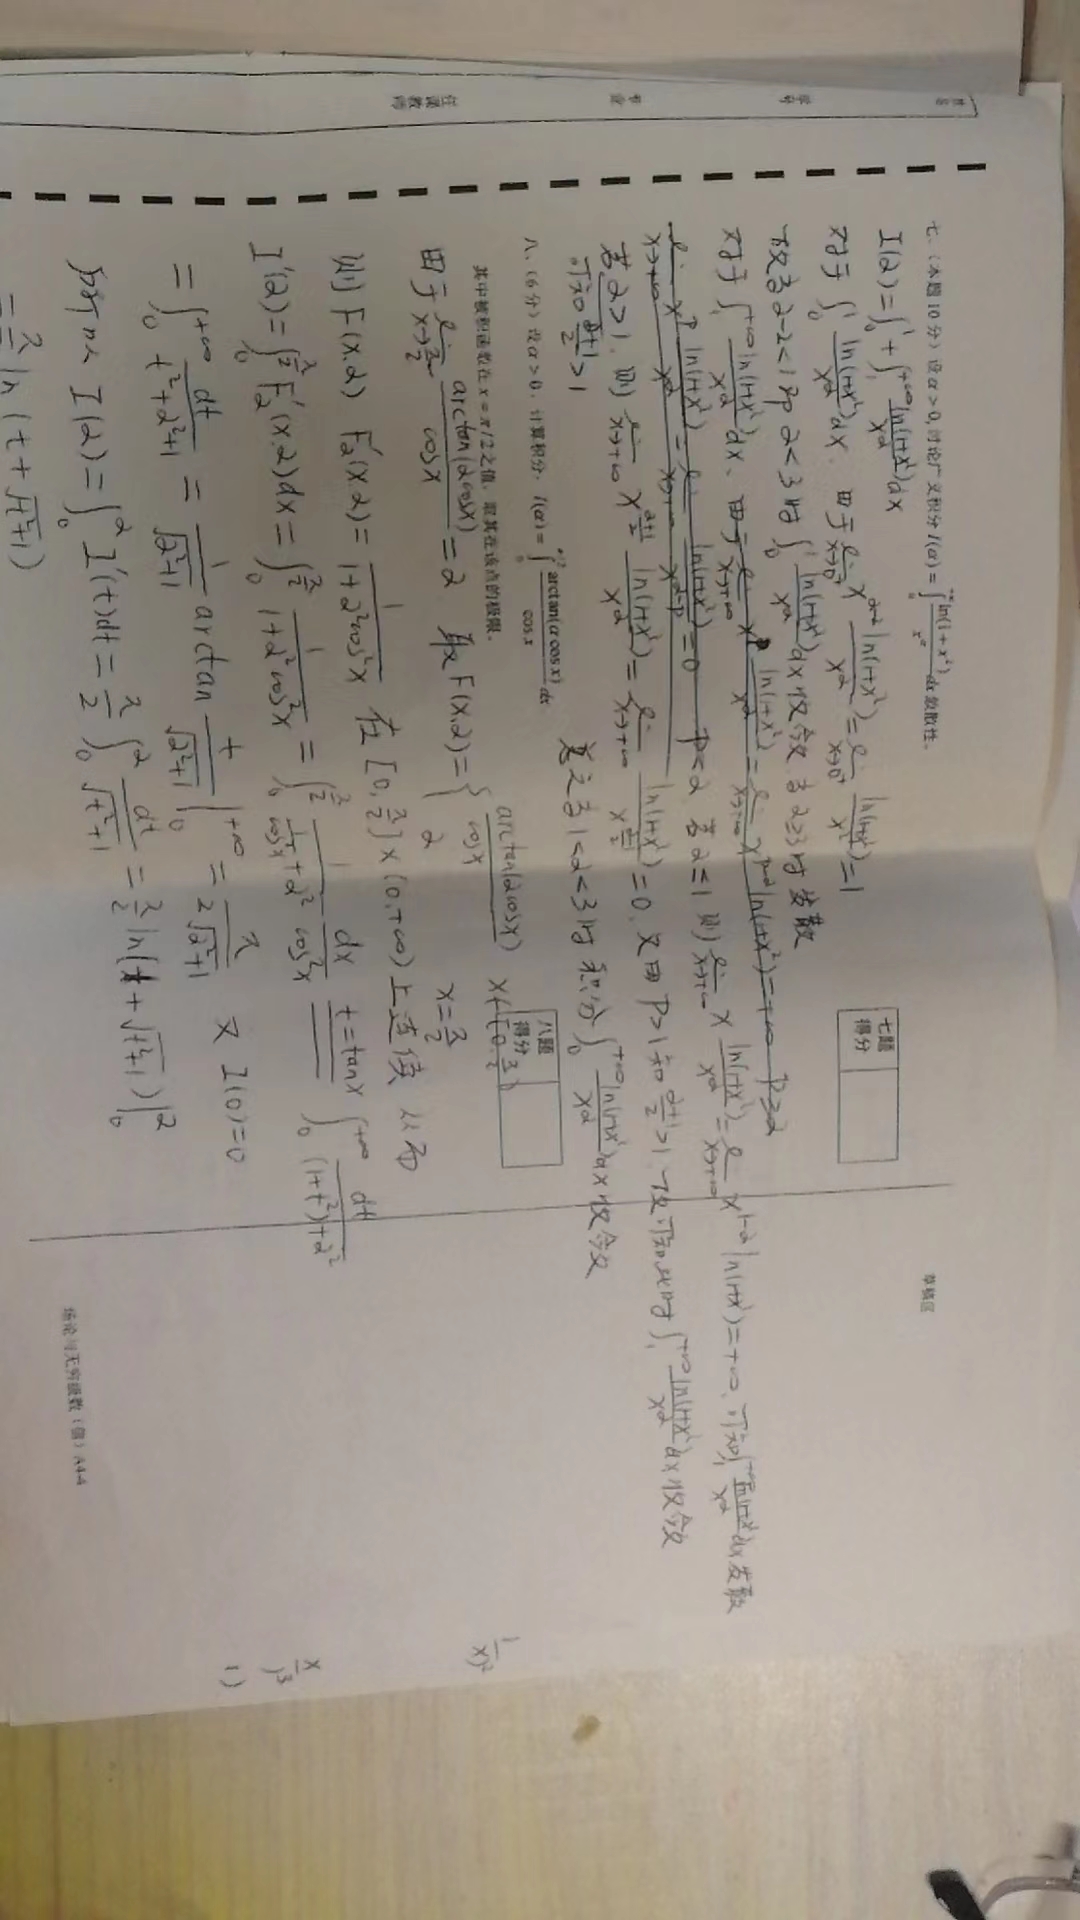 七、（本题10分）设α>0,讨论广义积分 I(α)=∫₀^{+∞} ln(1+x²)/x^α dx 敛散性。
I(α)=∫₀¹+∫₁^{+∞} ln(1+x²)/x^α dx
七题
得分
对于 ∫₀¹ ln(1+x²)/x^α dx. 由于 lim_{x→0⁺} x^{α-2} ln(1+x²)/x^α = lim_{x→0⁺} ln(1+x²)/x² = 1
故当 α-2<1 即 α<3 时 ∫₀¹ ln(1+x²)/x^α dx 收敛 当 α≥3 时 发散
对于 ∫₁^{+∞} ln(1+x²)/x^α dx、由于 lim_{x→+∞} x^p ln(1+x²)/x^α = lim_{x→+∞} x^{p-α} ln(1+x²) = +∞ p≥α
lim_{x→+∞} x^p ln(1+x²)/x^α = lim_{x→+∞} ln(1+x²)/x^{α-p} = 0 p<α 若 α≤1 则 lim_{x→+∞} x ln(1+x²)/x^α = lim_{x→+∞} x^{1-α} ln(1+x²) = +∞. 可知 ∫₁^{+∞} ln(1+x²)/x^α dx 发散
若 α>1. 则 lim_{x→+∞} x^{(α+1)/2} ln(1+x²)/x^α = lim_{x→+∞} ln(1+x²)/x^{(α-1)/2} = 0. 又由 p>1 知 (α+1)/2>1 故可知此时 ∫₁^{+∞} ln(1+x²)/x^α dx 收敛
可知 (α+1)/2>1
总之当 1<α<3 时 积分 ∫₀^{+∞} ln(1+x²)/x^α dx 收敛
八、（6分）设α>0，计算积分： I(α)=∫₀^{π/2} arctan(α cos x)/cos x dx
八题
得分
其中被积函数在 x=π/2 之值，取其在该点的极限。
由于 lim_{x→π/2} arctan(αcosx)/cosx = α 取 F(x,α)={ arctan(αcosx)/cosx x∈[0,π/2)
α x=π/2
则 F(x,α) F'_α(x,α)=1/(1+α²cos²x) 在 [0,π/2]×(0,+∞) 上连续 从而
I'(α)=∫₀^{π/2} F'_α(x,α)dx = ∫₀^{π/2} 1/(1+α²cos²x) = ∫₀^{π/2} 1/(1/cos²x+α²) dx/cos²x t=tanx ∫₀^{+∞} dt/((1+t²)+α²)
=∫₀^{+∞} dt/(t²+α²+1) = 1/√(α²+1) arctan t/√(α²+1) |₀^{+∞} = π/(2√(α²+1)) 又 I(0)=0
所以 I(α)=∫₀^α I'(t)dt = π/2 ∫₀^α dt/√(t²+1) = π/2 ln(t+√(t²+1))|₀^α
=π/2 ln(t+√(t²+1))
草稿区
场论与无穷级数（信）A4-4
姓名
学号
专业
任课教师